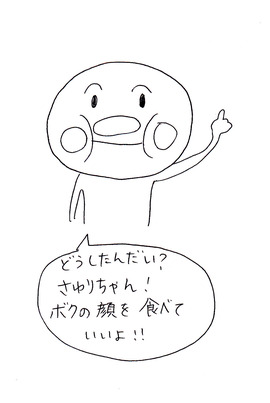 どうしたんだい?
さゆりちゃん!
ボクの顔を食べて
いいよ!!